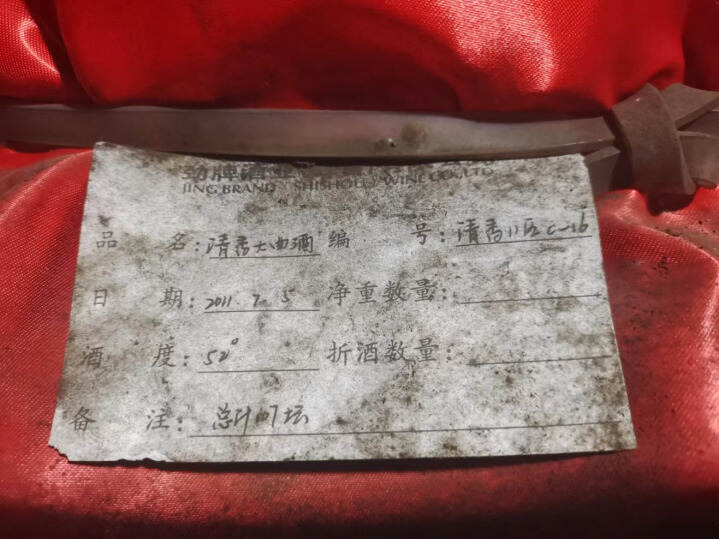 劲牌酒业
JING BRAND SHISHOU WINE CO.,LTD
品 名：清香大曲酒 编 号：清香II区C-26
日 期：2011.7.5 净重数量：
酒 度：52° 折酒数量：
备 注：总计107坛